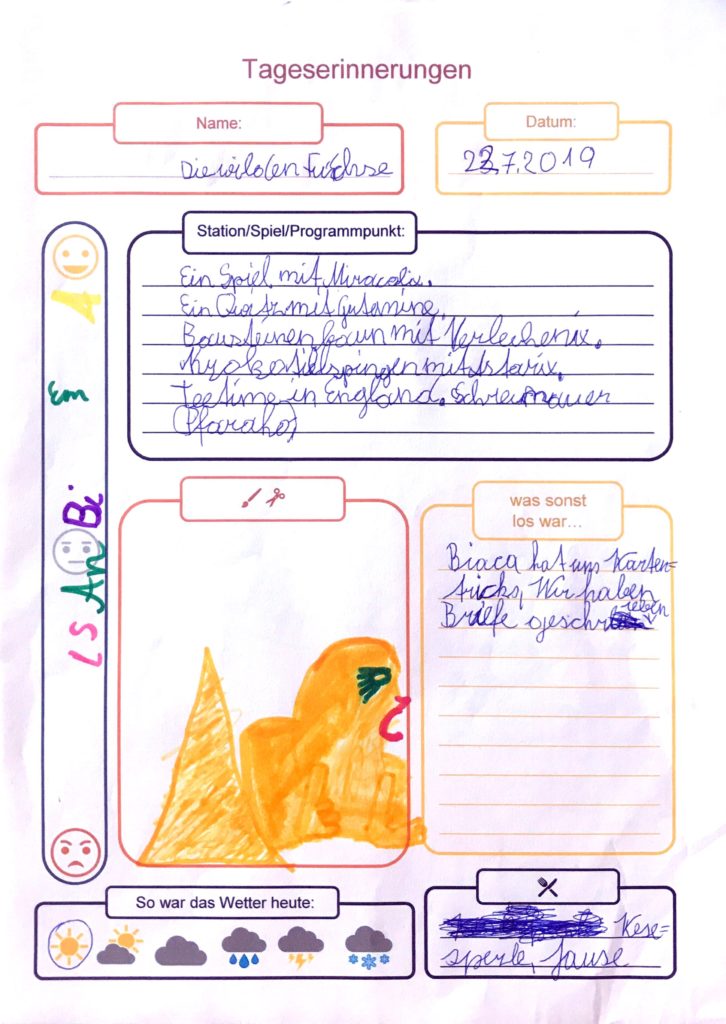 Tageserinnerungen
Name:
Die wilden Füchse
Datum:
23.7.2019
Station/Spiel/Programmpunkt:
Ein Spiel mit Miracolix.
Ein Quitz mit Gutamine.
Bausteinen baun mit Verleihenix.
mit Astarix.
Teetime in England. Schreimauer
(Pfaraho)
A
Em
Bi
An
LS
was sonst
los war...
Biaca hat uns Karten=
tricks, Wir haben
Briefe geschrieben
So war das Wetter heute:
Kese=
sperle, Jause